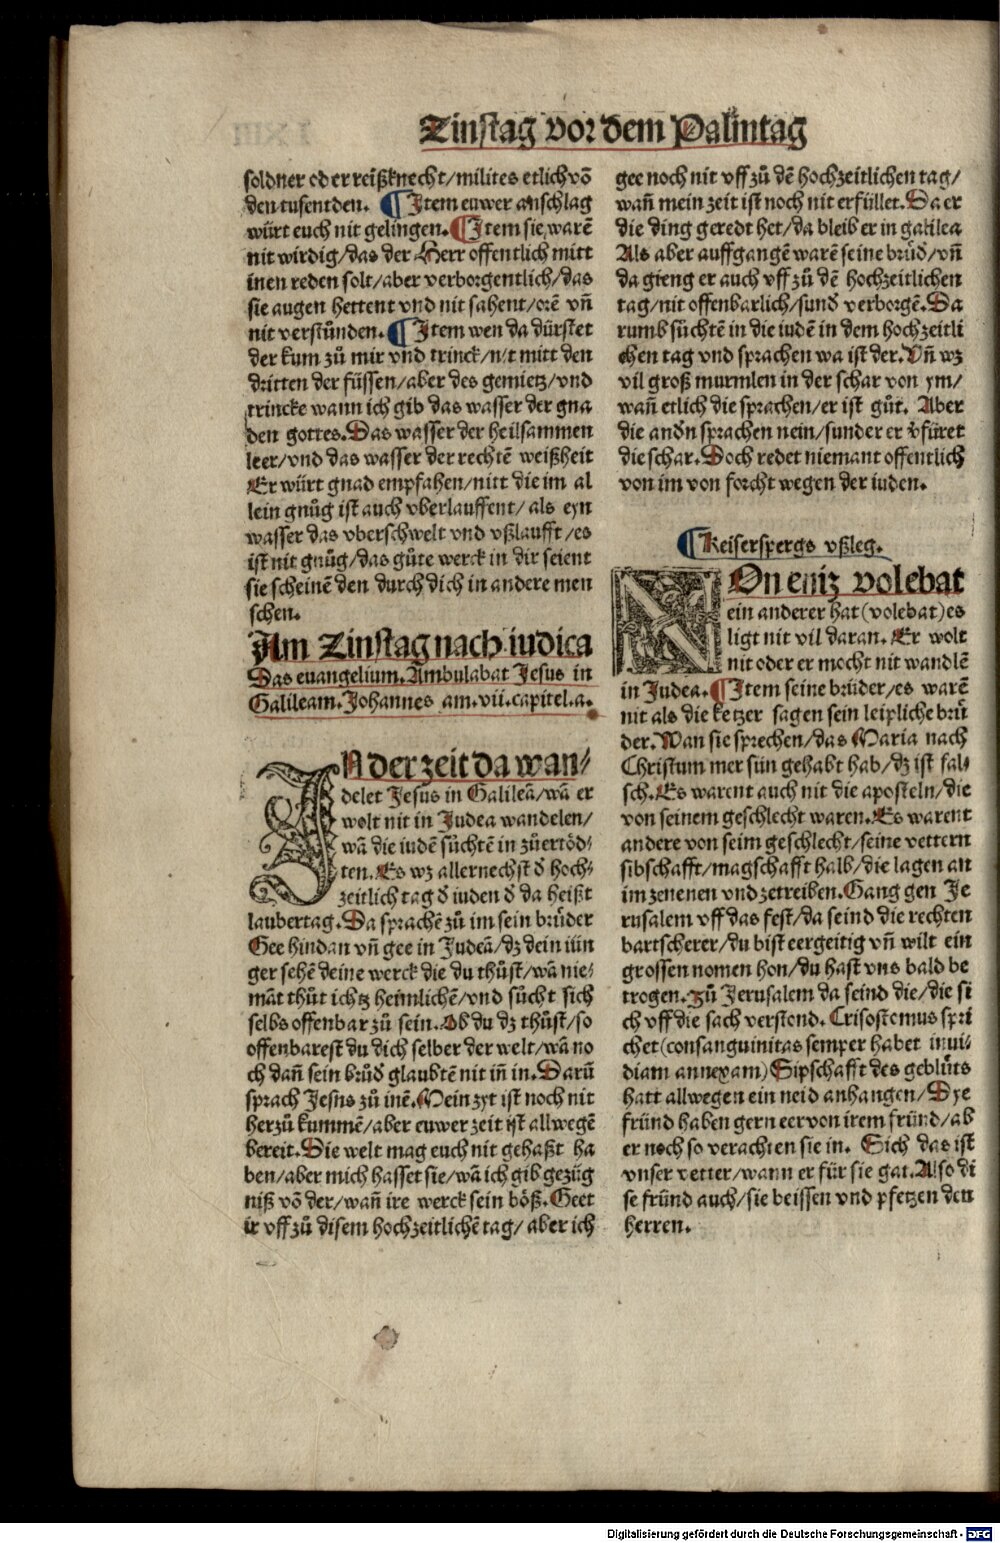 Zinstag vor dem Palmtag
soldner oder reißknecht/milites etlich võ
den tusentden. ¶ Item euwer anschlag
würt euch nit gelingen. ¶ Item sie warẽ
nit wirdig/das der Herr offentlich mitt
inen reden solt/aber verborgentlich/das
sie augen hettent vnd nit sahent/orẽ vñ
nit verstünden. ¶ Item wen da dürstet
der kum zů mir vnd trinck/n/t mitt den
dritten der füssen/aber des gemietz/vnd
trincke wann ich gib das wasser der gna
den gottes. Das wasser der heilsammen
leer/vnd das wasser der rechtẽ weißheit
Er würt gnad empfahen/nitt die im al
lein gnůg ist auch vberlauffent/als eyn
wasser das vberschwelt vnd vßlaufft/es
ist nit gnůg/das gůte werck in dir seient
sie scheinẽ den durch dich in andere men
schen.
Am Zinstag nach iudica
Das euangelium. Ambulabat Jesus in
Galileam. Johannes am .vii. capitel .a.
IN der zeit da wan⸗
delet Jesus in Galileã/wã er
wolt nit in Judea wandelen/
wã die iudẽ sůchtẽ in zůertöd⸗
ten. Es wz allernechst đ hoch⸗
zeitlich tag đ iuden đ da heißt
laubertag. Da sprachẽ zů im sein brüder
Gee hindan vñ gee in Judeã/dz dein iün
ger sehẽ deine werck die du thůst/wã nie⸗
mãt thůt ichtz heimlichẽ/vnd sůcht sich
selbs offenbar zů sein. Ob du dz thůst/so
offenbarest du dich selber der welt/wã no
ch dañ sein brůđ glaubtẽ nit iñ in. Darũ
sprach Jesus zů inẽ. Mein zyt ist noch nit
herzů kummẽ/aber euwer zeit ist allwegẽ
bereit. Die welt mag euch nit gehaßt ha
ben/aber mich hasset sie/wã ich gib gezüg
niß võ der/wañ ire werck sein böß. Geet
ir vff zů disem hochzeitlichẽ tag/ aber ich
gee noch nit vff zů dẽ hochzeitlichen tag/
wañ mein zeit ist noch nit erfüllet. Da er
die ding geredt het/da bleib er in galilea
Als aber auffgangẽ warẽ seine brüđ/vñ
da gieng er auch vff zů dẽ hochzeitlichen
tag/nit offenbarlich/sunđ verborgẽ. Da
rumb sůchtẽ in die iudẽ in dem hochzeitli
chen tag vnd sprachen wa ist der. Vñ wz
vil groß murmlen in der schar von ym/
wañ etlich die sprachen/er ist gůt. Aber
die andn sprachen nein/sunder er v̊füret
die schar. Doch redet niemant offentlich
von im von forcht wegen der iuden.
¶ Keiserspergs vßleg.
NOn eniz volebat
ein anderer hat (volebat) es
ligt nit vil daran. Er wolt
nit oder er mocht nit wandlẽ
in Judea. ¶ Item seine brüder/es warẽ
nit als die ketzer sagen sein leipliche brü
der. Wan sie sprechen/das Maria nach
Christum mer sün gehabt hab/dz ist fal⸗
sch. Es warent auch nit die aposteln/die
von seinem geschlecht waren. Es warent
andere von seim geschlecht/seine vettern
sibschafft/magschafft halb/die lagen an
im zenenen vnd zetreiben. Gang gen Je
rusalem vff das fest/da seind die rechten
bartscherer/du bist eergeitig vñ wilt ein
grossen nomen hon/du hast vns bald be
trogen. zů Jerusalem da seind die/die si
ch vff die sach verstond. Crisostemus spri
chet (consanguinitas semper habet inui⸗
diam annexam) Sipschafft des geblůts
hatt allwegen ein neid anhangen/Dye
fründ haben gern eer von irem fründ/ab
er noch so verachten sie in. Sich das ist
vnser vetter/wann er für sie gat. Also di
se fründ auch/sie beissen vnd pfetzen den
herren.
Digitalisierung gefördert durch die Deutsche Forschungsgemeinschaft - DFG